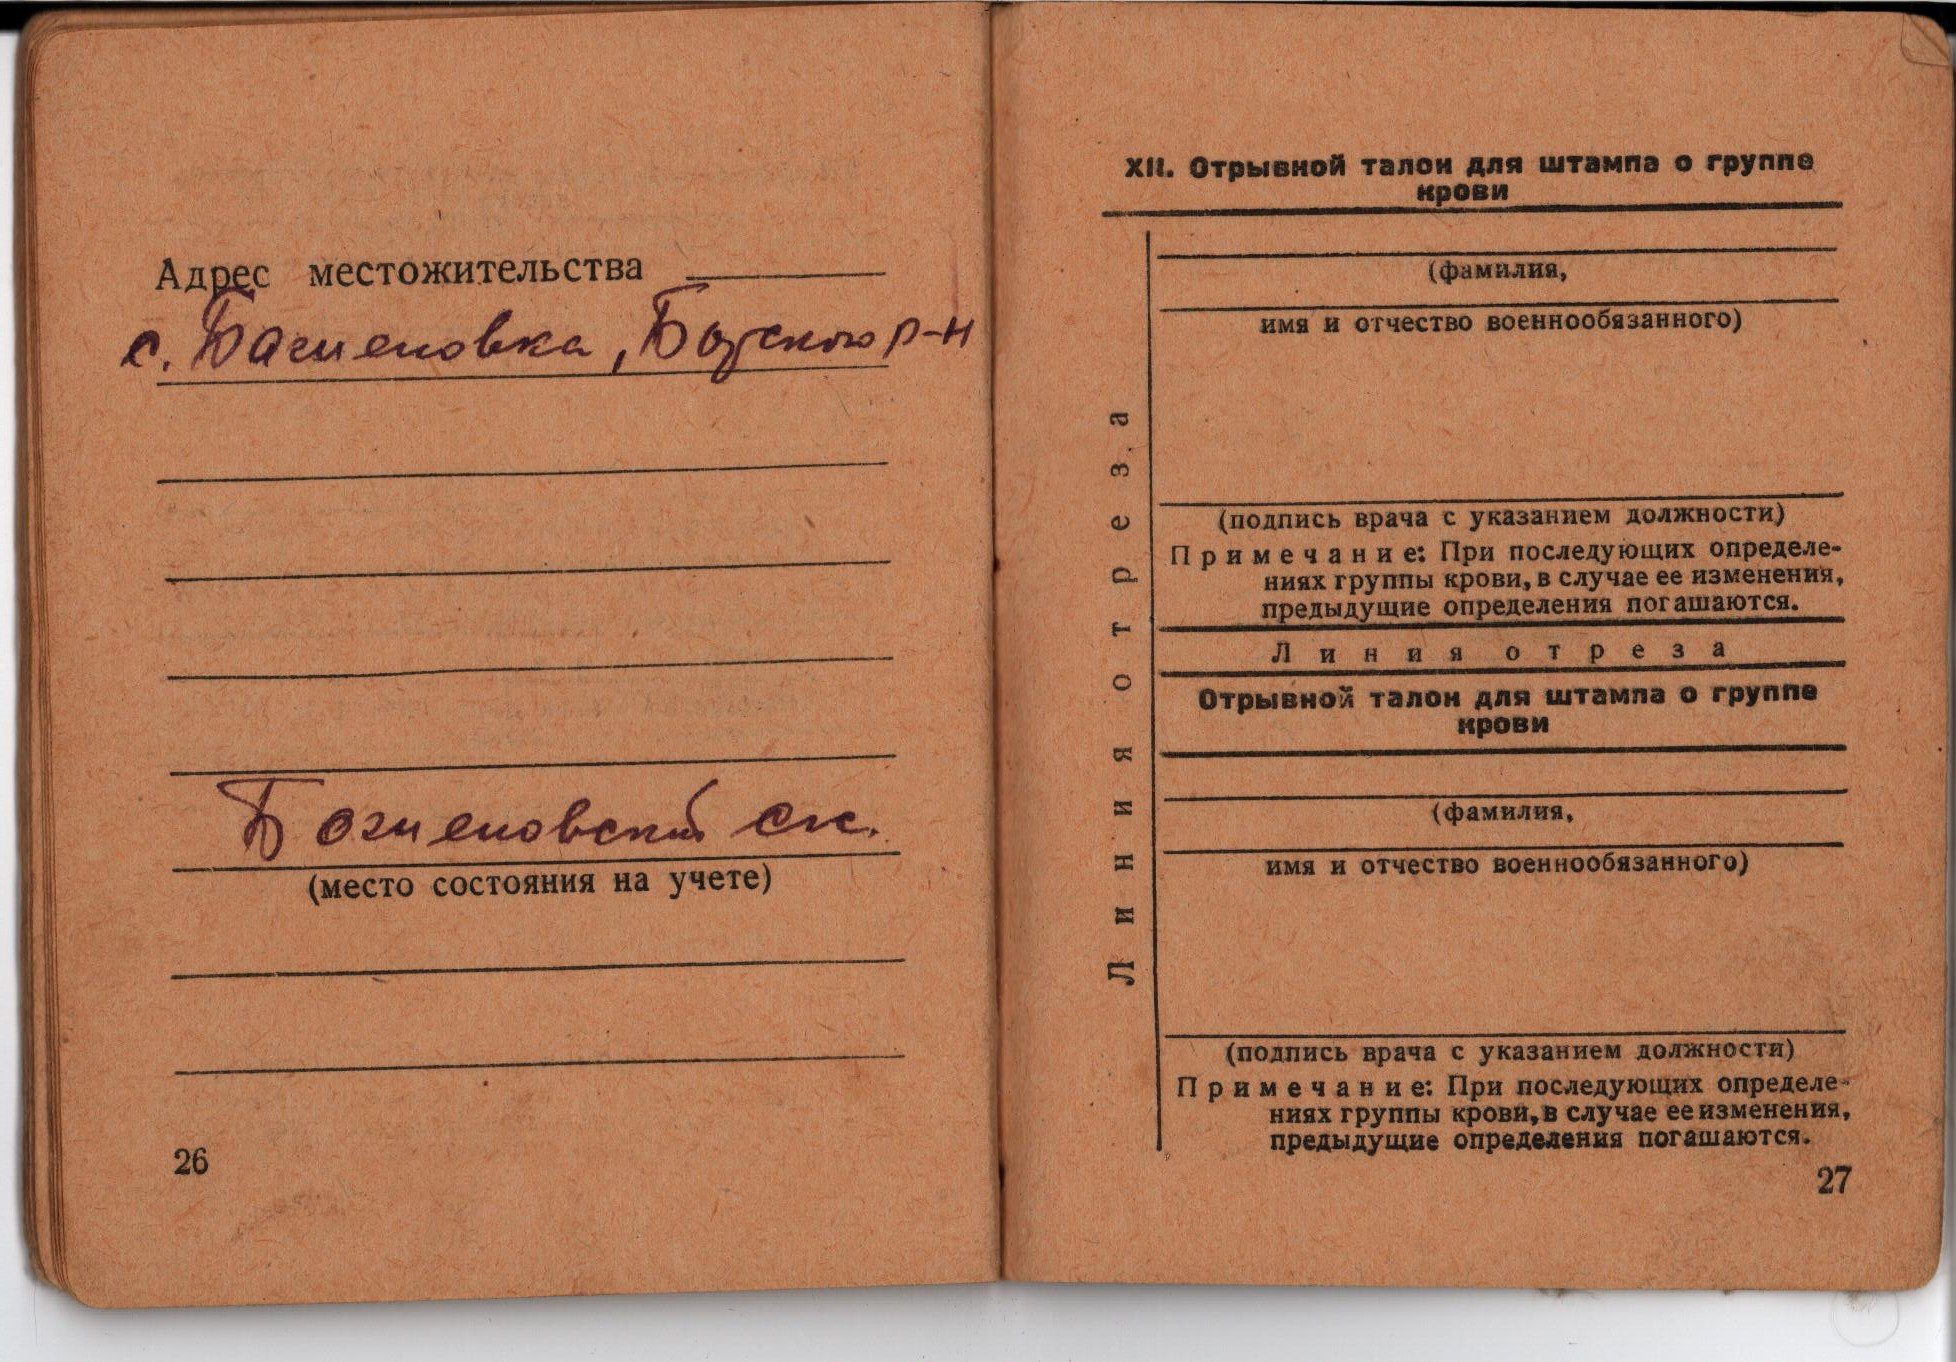 Адрес местожительства
с. Баженовка, р-н
Баженовский
(место состояния на учете)
26
XII. Отрывной талон для штампа о группе
крови
(фамилия,
имя и отчество военнообязанного)
(подпись врача с указанием должности)
Примечание: При последующих определе-
ниях группы крови, в случае ее изменения,
предыдущие определения погашаются.
Линия отреза
Линия отреза
Отрывной талон для штампа о группе
крови
(фамилия,
имя и отчество военнообязанного)
(подпись врача с указанием должности)
Примечание: При последующих определе-
ниях группы крови, в случае ее изменения,
предыдущие определения погашаются.
27